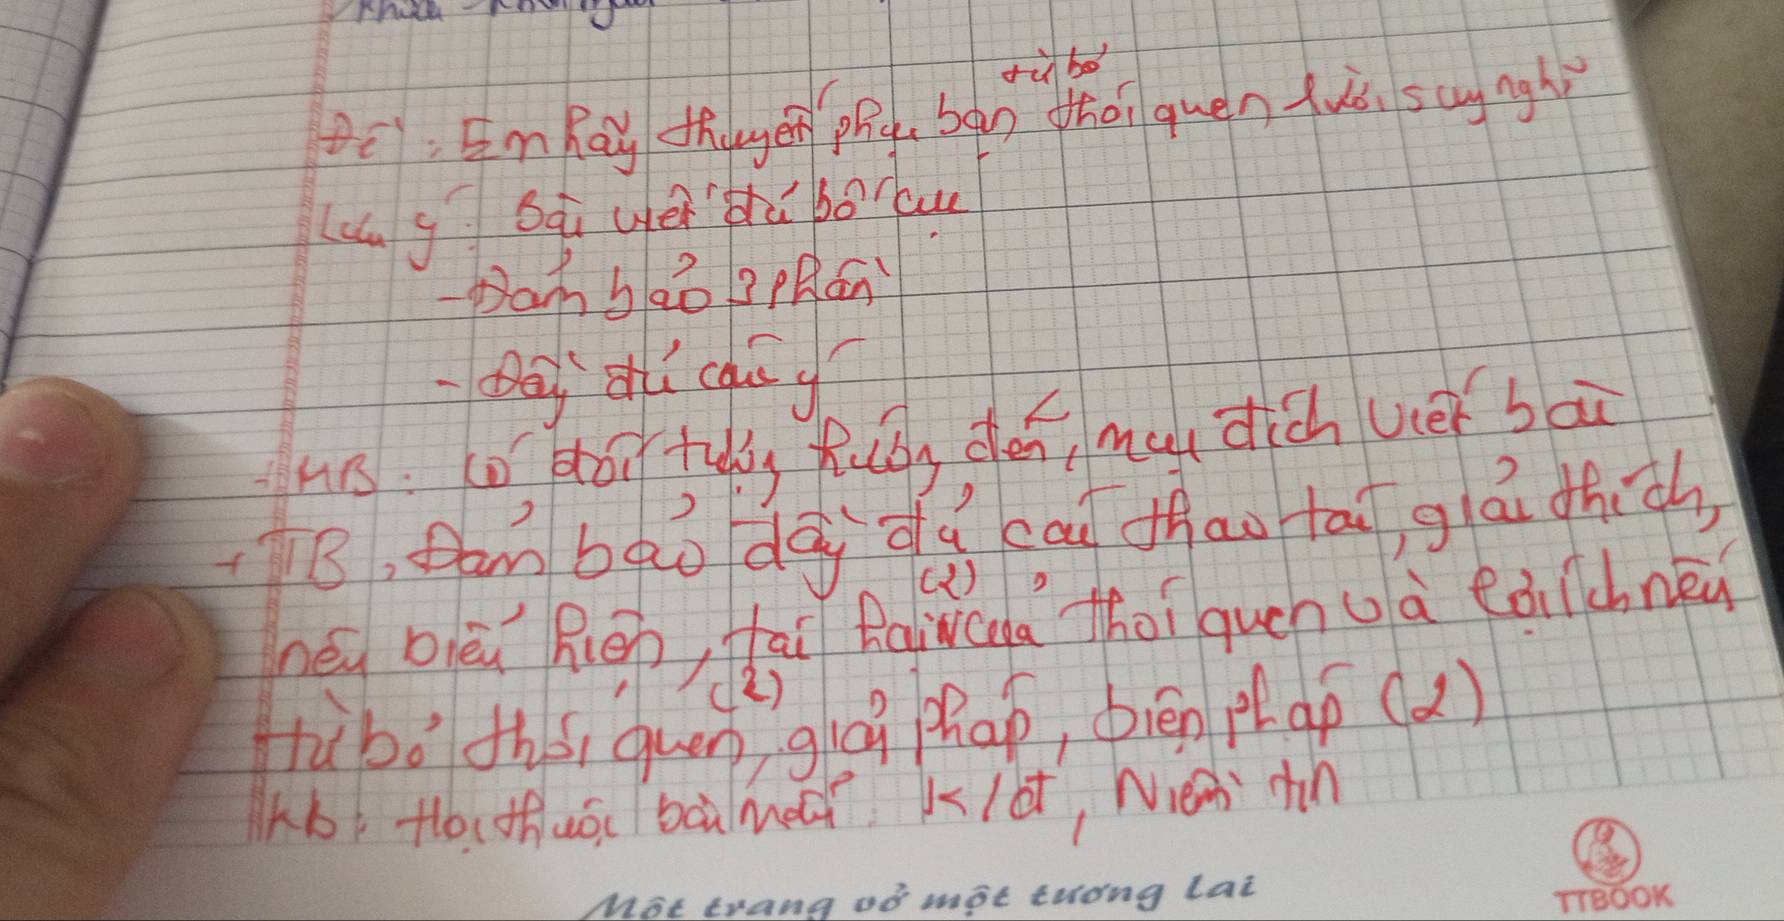 từ bỏ
Đề: Em hãy thuyết phục bạn thói quen lười suy nghĩ
Lưu ý: Bài viết đủ bố cục
- Đảm bảo 3 phần
- Đầy đủ các ý
+ MB: Có đối tượng hướng đến, mục đích viết bài
+ TB, Đảm bảo đầy đủ các thao tác, giải thích,
nêu biểu hiện, tác hại (2) của thói quen và lợi ích nếu
từ bỏ thói quen (2), giải pháp, biện pháp (2)
KB: Học thuộc bài mẫu K/đ, Niềm tin
Một trang vở một tương lai
TTBOOK